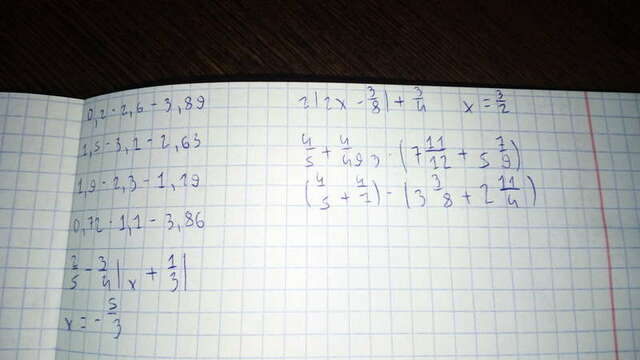 0,2 - 2,6 - 3,89
1,5 - 3,1 - 2,63
1,9 - 2,3 - 1,29
0,72 · 1,1 - 3,86
2/5 - 3/4 | x + 1/3 |
x = - 5/3
2 | 2x - 3/8 | + 3/4    x = 3/2
4/5 + 4/49 3 · ( 7 11/12 + 5 7/9 )
( 4/5 + 4/7 ) - ( 3 3/8 + 2 11/4 )